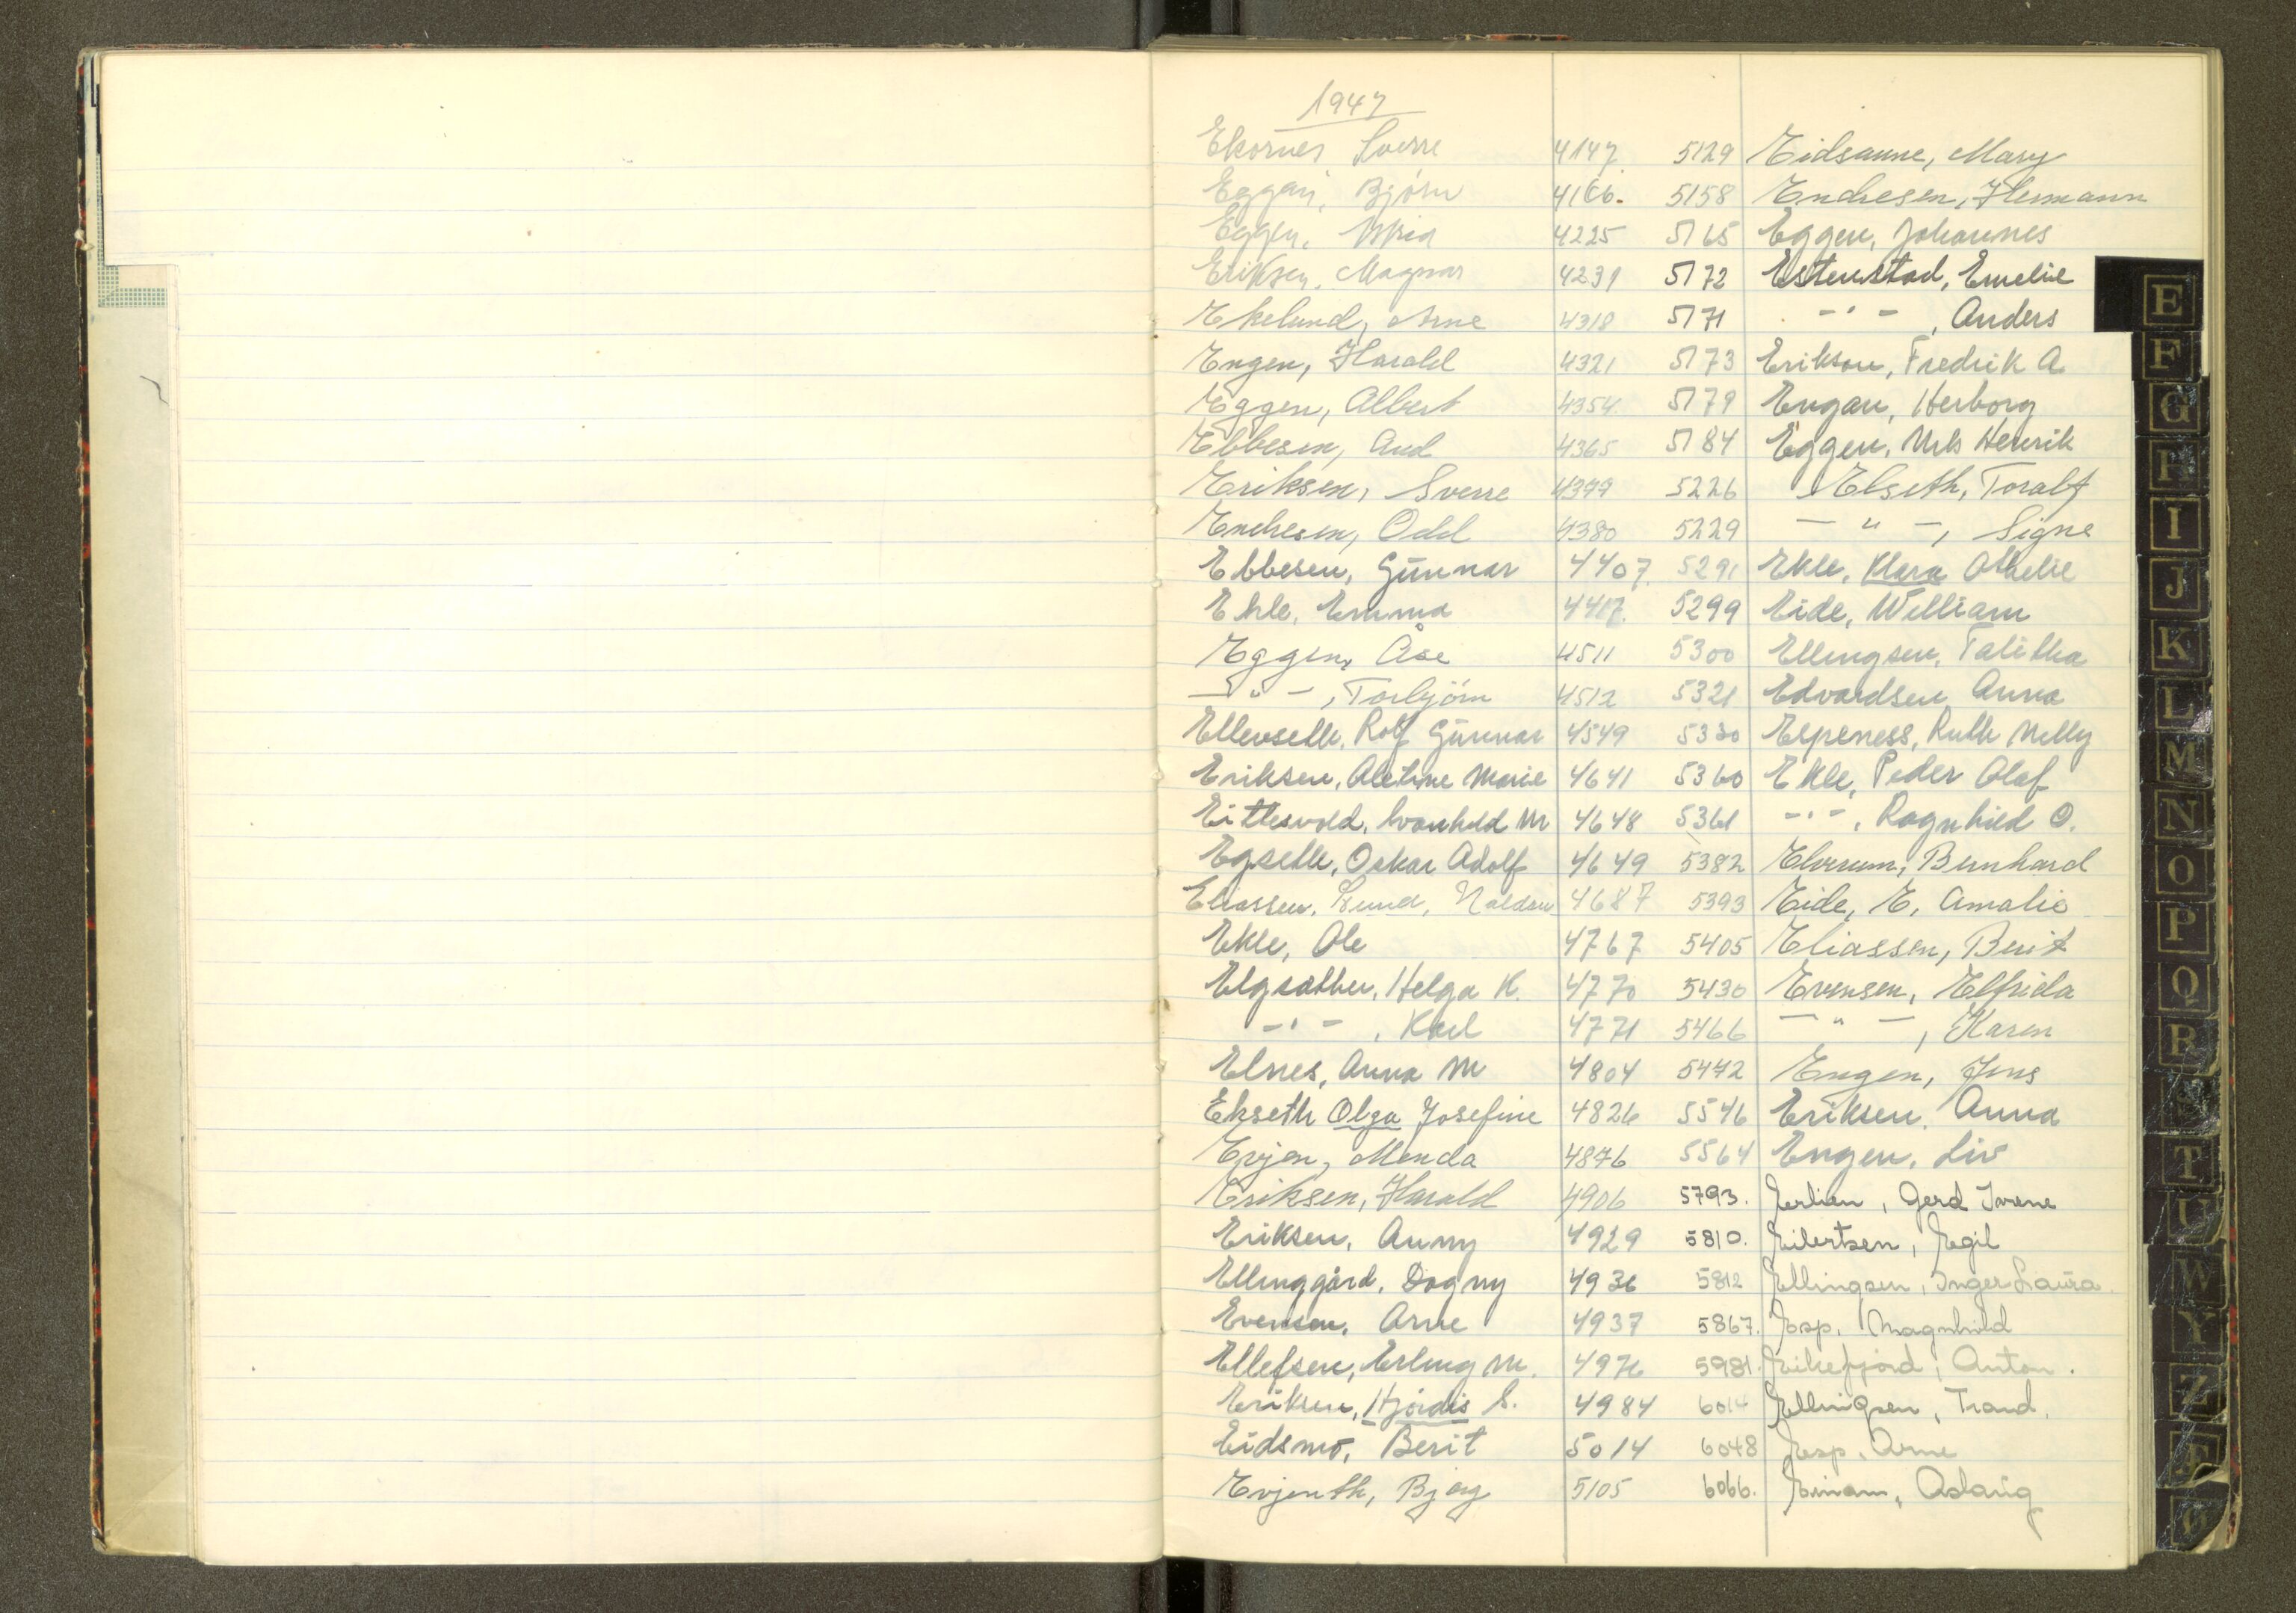 1947
Ekornes Sverre 4147 5129 Eidsaune, Mary
Eggen, Bjørn 4166. 5158 Endresen, Hermann
Eggen, 4225 5165 Eggen, Johannes
Eriksen, Magnar 4231 5172 Estenstad, Emelie
Ekelund, Arne 4318 5171 -"- , Anders
Engen, Harald 4321 5173 Erikson, Fredrik A
Eggen, Albert 4354. 5179 Engan, Herborg
Ebbesen, Aud 4365 5184 Eggen, Nils Henrik
Eriksen, Sverre 4377 5226 Elseth, Toralf
Endresen, Odd 4380 5229 - " -, Signe
Ebbesen, Gunnar 4407. 5291 Ekle, Klara Othelie
Ekle, Emma 4417. 5299 Eide, William
Eggen, Åse 4511 5300 Ellingsen, Talitha
- " - , Torbjörn 4512 5321 Edvardsen Anna
Ellevseth, Rolf Gunnar 4549 5330 Elpeness, Ruth Nelly
Eriksen, Aletine Marie 4641 5360 Ekle, Peder Olaf
M 4648 5361 -"- , Ragnhild O.
Egseth, Oskar Adolf 4649 5382 Elverum, Bernhard
Eliassen, 4687 5393 Eide, E, Amalie
Ekle, Ole 4767 5405 Eliassen, Berit
Elgsæther, Helga K. 4770 5430 Evensen, Elfrida
-"- , Karl 4771 5466 - " - , Karen
Elnes, Anna M 4804 5472 Engen, Jens
Ekseth Olga Josefine 4826 5546 Eriksen, Anna
Evjen, Menda 4876 5564 Engen, Liv
Eriksen, Harald 4906 5793. Erlien, Gerd Irene
Eriksen, Anny 4929 5810. Eilertsen, Egil
Ellinggård, Dagny 4936 5812 Ellingsen, Inger Laura.
Evensen, Arne 4937 5867. Esp, Magnhild
Ellefsen, Erling M. 4976 5981. Eikefjord, Anton.
Eriksen, Hjördis S. 4984 6014 Ellingsen, Traud.
Eidsmo, Berit 5014 6048 Esp, Arne
Evjenth, Bjørg 5105 6066. Einam, Aslaug
E
F
G
H
I
J
K
L
M
N
O
P
Q
R
S
T
U
W
Y
Z
Æ
Ø